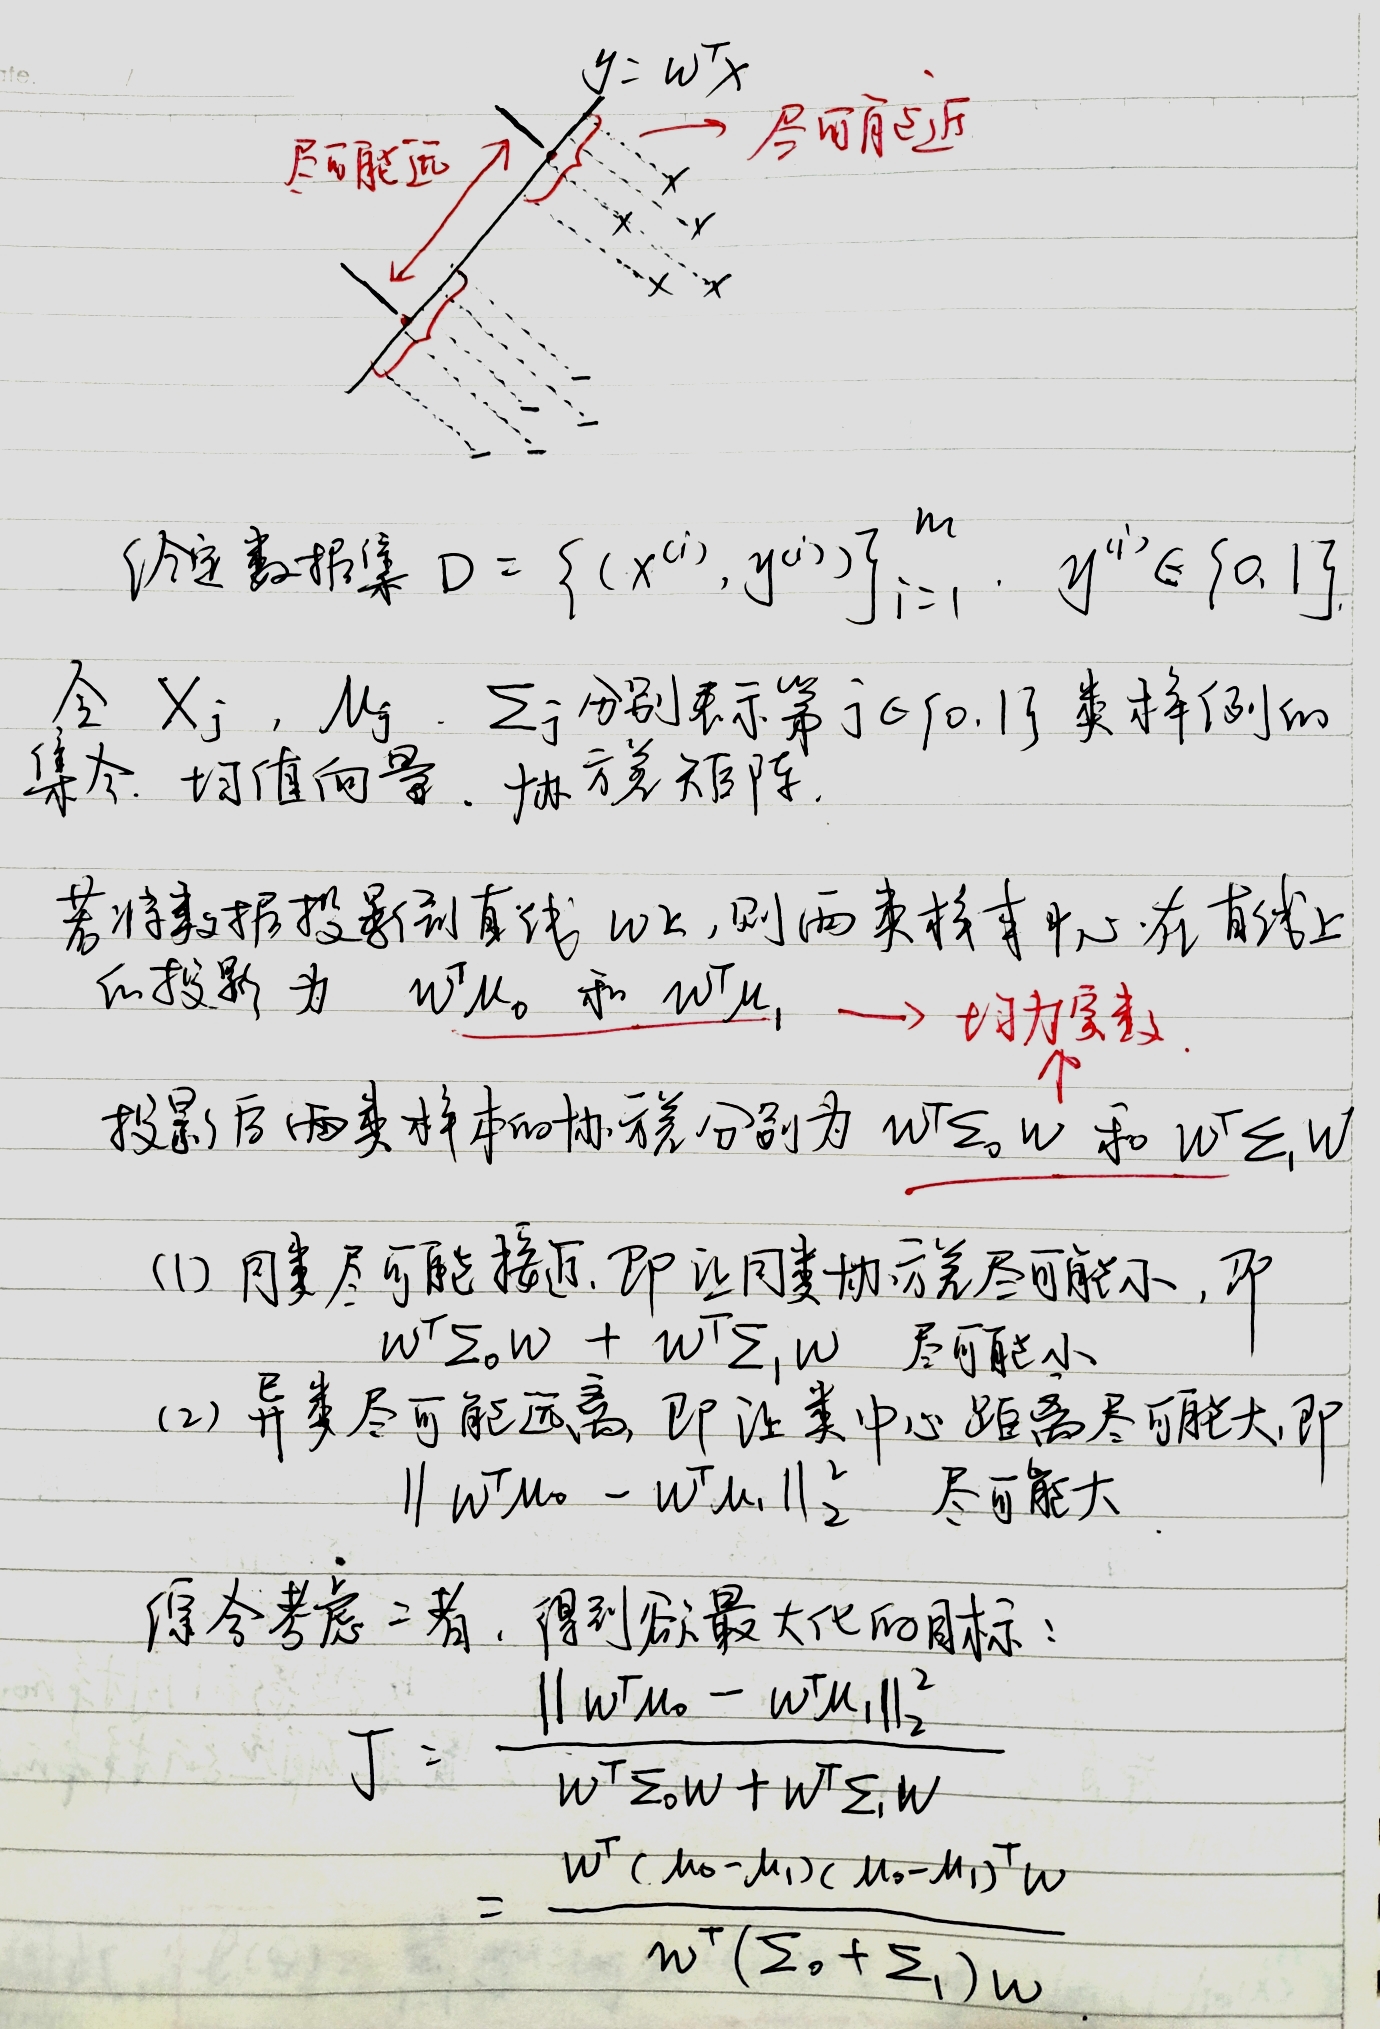 y = wᵀx
尽可能远
→ 尽可能近
给定数据集 D = {(x⁽ⁱ⁾, y⁽ⁱ⁾)}ᵢ₌₁ᵐ. y⁽ⁱ⁾ ∈ {0, 1}.
令 Xⱼ, μⱼ. Σⱼ 分别表示第 j ∈ {0, 1} 类样例的
集合. 均值向量. 协方差矩阵.
若将数据投影到直线 w上, 则两类样本中心在直线上
的投影为 wᵀμ₀ 和 wᵀμ₁ → 均为实数.
投影后两类样本的协方差分别为 wᵀΣ₀w 和 wᵀΣ₁w
(1) 同类尽可能接近, 即让同类协方差尽可能小, 即
wᵀΣ₀w + wᵀΣ₁w 尽可能小
(2) 异类尽可能远离, 即让类中心距离尽可能大, 即
‖wᵀμ₀ - wᵀμ₁‖₂² 尽可能大.
综合考虑二者, 得到欲最大化的目标:
‖wᵀμ₀ - wᵀμ₁‖₂²
J =
wᵀΣ₀w + wᵀΣ₁w
wᵀ(μ₀-μ₁)(μ₀-μ₁)ᵀw
=
wᵀ(Σ₀+Σ₁)w